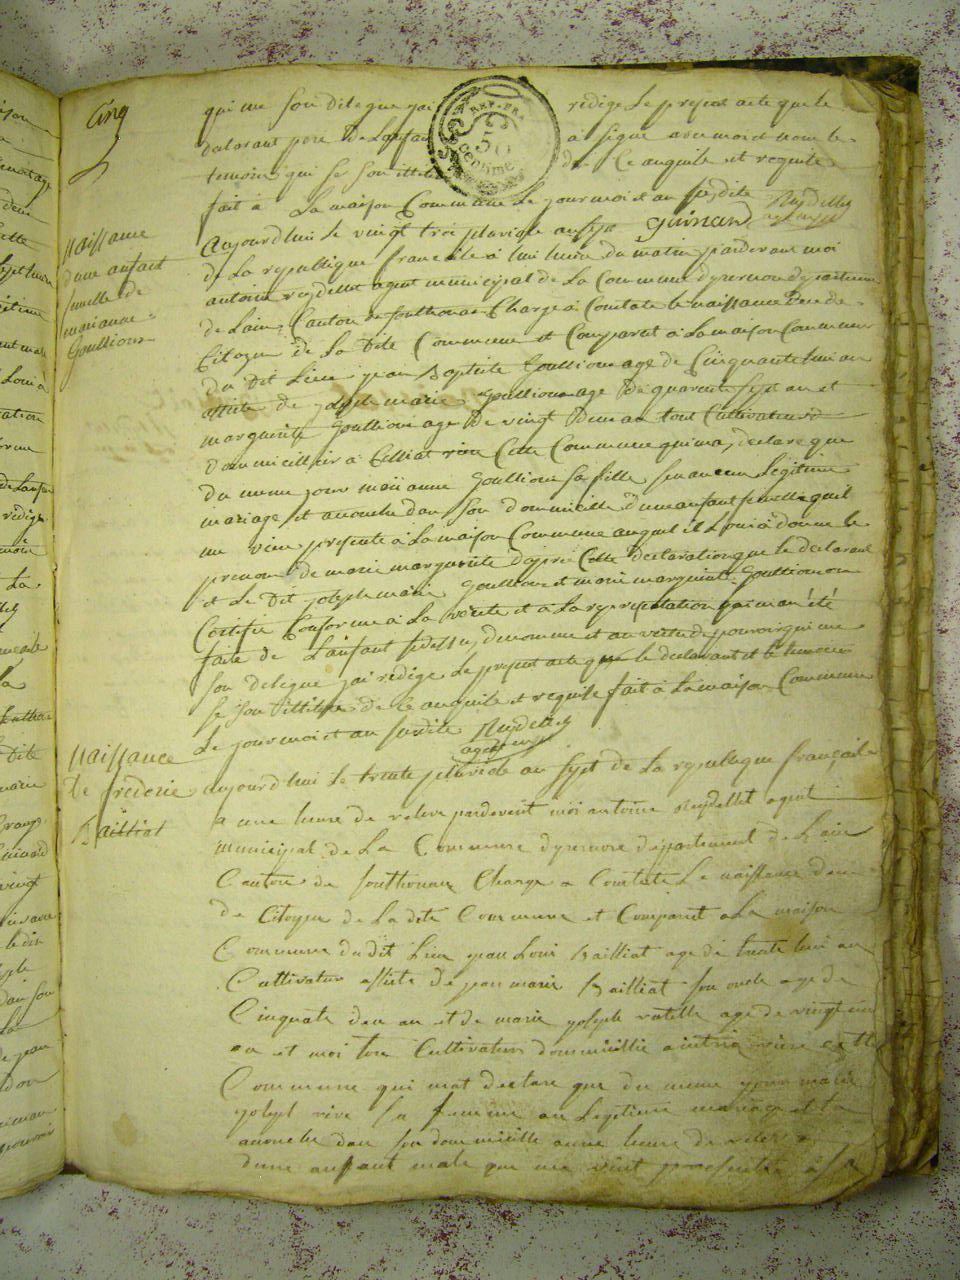 Cinq
qui me son delegue jai redige le present acte que le
declarant pere de lanfan a signe avec moi et nom le
temoins qui se son de ce anquile et requile
fait à La maison Commune Le jour moi et an susdite Reydellet
REP. FRA.
50
centime
Guinand
Naissance
dune anfant
femelle de
marianne
Goullion
Aujourdhui le vingt troi pluviose an sept
de La republique francaise à hui heure du matin pardevan moi
antoine reydellet agent municipal de La Commune dyzernore departement
de Lain, Canton de sonthonax Charge à Constate le naissance De
Citoyen de La Dite Commune et Comparut à La maison Commune
du Dit Lieu jean Baptiste Goullion age de Cinquante hui an
assiste de joseph marie Goullion age De quarente sept an et
marguerite Goullion age De vingt Deux an tout Cultivateur
Dommicillier à Cette Commune qui ma declare que
du meme jour mariianne Goullion sa fille sen aucun Legitime
mariage et acouche dan son dommicille Dune anfant femelle quil
me vien presente à La maison Commune auquel il Loui à donne le
prenom de marie marguerite dapre Cette declaration que le declarant
et Le Dit joseph marie Goullion et marie marguerite Goullion on
Certifie Conforme à La verite et à La representation qui man été
faite de Lanfant sidessus denomme et an vertu de pouvoir qui me
son delegue jai redige Le present acte que le declarant et le temoin
se son de ce anquile et requise fait à La maison Commune
Le jour moi et an susdite Reydellet
agent
Naissance
de frederic
Bailliat
aujourdhui le trente pluviose an sept de La republique français
a une heure de releve pardevent moi antoine Reydellet agent
municipal de La Commune dyzernore departement de Lain
Canton de sonthonax Charge a Constate Le naissance
de Citoyen de La dite Commune et Comparut a La maison
Commune du dit Lieu jean Loui Bailliat age de trente hui an
Cultivateur assiste de jean marie Bailliat son oncle age de
Cinquate deu an et de marie joseph age de vingt un
an et moi tou Cultivateur dommicillie rière cette
Commune qui mat declare que du meme jour marie
joseph rive sa femme an Legitime mariage et la
acouche dan son dommicille a une heure de releve
dune anfant male que me vient presente à